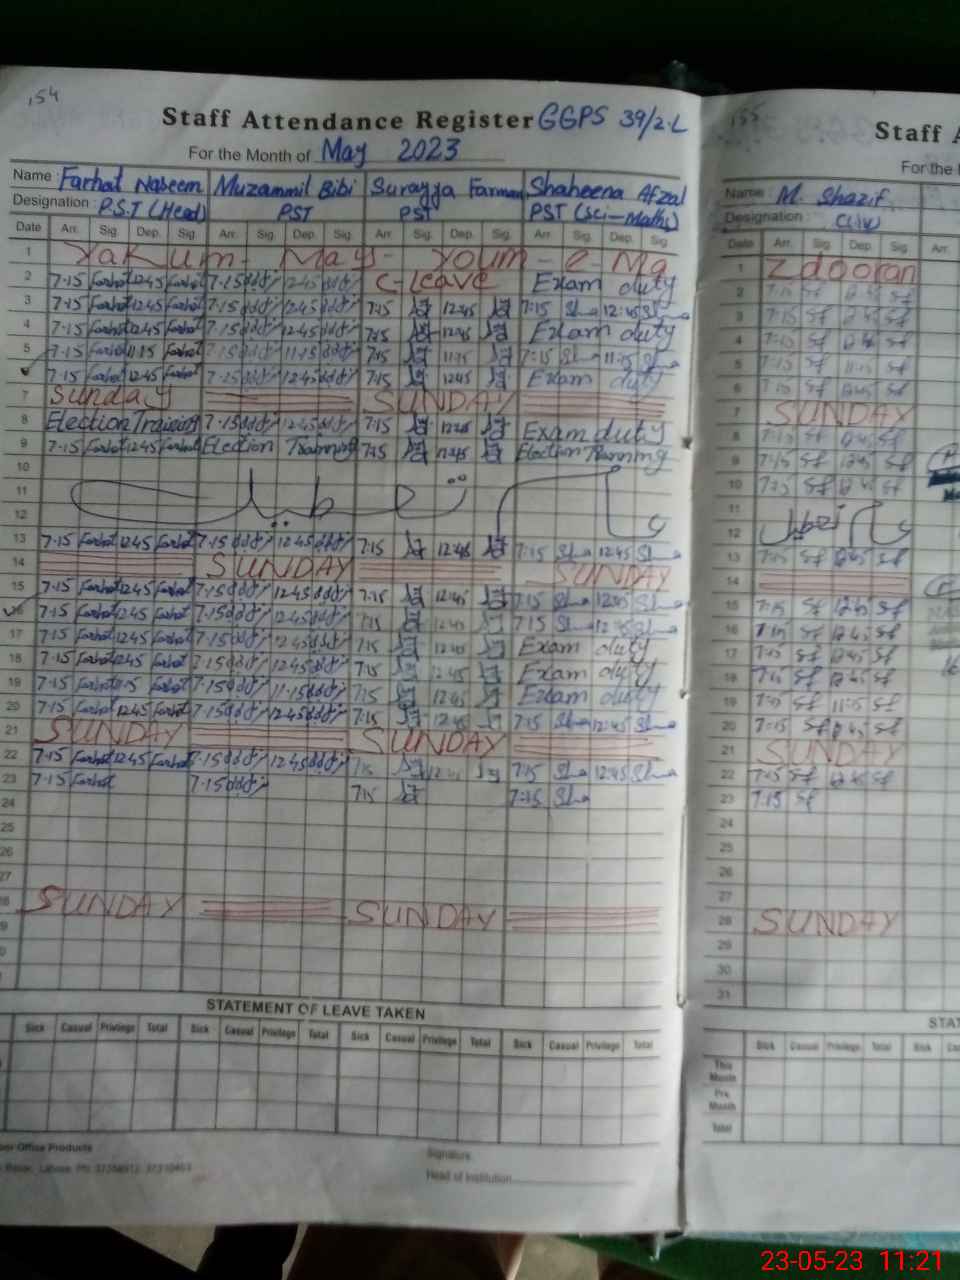 154
Staff Attendance Register GGPS 39/2-L
For the Month of May 2023
Name: Farhat Nabeem Muzammil Bibi Surayya Farman Shaheena Afzal
Designation: P.S.T (Head) PST PST PST (Sci-Maths)
Date Arr. Sig. Dep. Sig. Arr. Sig. Dep. Sig. Arr. Sig. Dep. Sig. Arr. Sig. Dep. Sig.
1 Yakum - May - Youm - e - Ma
2 7.15 Farhat 12.45 Farhat 7.15 12.45 C-leave Exam duty
3 7.15 Farhat 12.45 Farhat 7.15 12.45 7:15 12:45 7:15 Sha 12:45 Sha
4 7.15 Farhat 12.45 Farhat 7.15 12.45 7:15 12:45 Exam duty
5 7.15 Farhat 11.15 Farhat 7.15 11.15 7:15 11:15 7:15 Sha 11:15 Sha
7.15 Farhat 12.45 Farhat 7.15 12.45 7:15 12:45 Exam duty
7 Sunday SUNDAY
8 Election Training 7.15 12.45 7:15 12:45 Exam duty
9 7.15 Farhat 12.45 Farhat Election Training 7:15 12:45 Election Training
10
11
12
13 7.15 Farhat 12.45 Farhat 7.15 12.45 7:15 12:45 7:15 Sha 12:45 Sha
14 SUNDAY SUNDAY
15 7.15 Farhat 12.45 Farhat 7.15 12.45 7:15 12:45 7:15 Sha 12:45 Sha
16 7.15 Farhat 12.45 Farhat 7.15 12.45 7:15 12:45 7:15 Sha 12:45 Sha
17 7.15 Farhat 12.45 Farhat 7.15 12.45 7:15 12:45 Exam duty
18 7.15 Farhat 12.45 Farhat 7.15 12.45 7:15 12:45 Exam duty
19 7.15 Farhat 11.15 Farhat 7.15 11.15 7:15 12:45 Exam duty
20 7.15 Farhat 12.45 Farhat 7.15 12.45 7:15 12:45 7:15 Sha 12:45 Sha
21 SUNDAY SUNDAY
22 7.15 Farhat 12.45 Farhat 7.15 12.45 7:15 12:45 7:15 Sha 12:45 Sha
23 7.15 Farhat 7.15 7:15 7:15 Sha
24
25
26
27
28 SUNDAY SUNDAY
STATEMENT OF LEAVE TAKEN
Sick Casual Privilege Total Sick Casual Privilege Total Sick Casual Privilege Total Sick Casual Privilege Total
Office Products
Signature
Head of Institution
155
Staff A
For the
Name: M. Shazif
Designation: C(iv)
Date Arr. Sig. Dep. Sig. Arr.
1 zdooran
2 7:15 Sf 12:45 Sf
3 7:15 Sf 12:45 Sf
4 7:15 Sf 12:45 Sf
5 7:15 Sf 11:15 Sf
6 7:15 Sf 12:45 Sf
7 SUNDAY
8 7:15 Sf 12:45 Sf
9 7:15 Sf 12:45 Sf
10 7:15 Sf 12:45 Sf
11
12
13 7:15 Sf 12:45 Sf
14
15 7:15 Sf 12:45 Sf
16 7:15 Sf 12:45 Sf
17 7:15 Sf 12:45 Sf
18 7:15 Sf 12:45 Sf
19 7:15 Sf 11:15 Sf
20 7:15 Sf 12:45 Sf
21 SUNDAY
22 7:15 Sf 12:45 Sf
23 7:15 Sf
24
25
26
27
28 SUNDAY
29
30
31
STAT
Sick Casual Privilege Total Sick
This Month
Pre. Month
Total
23-05-23 11:21